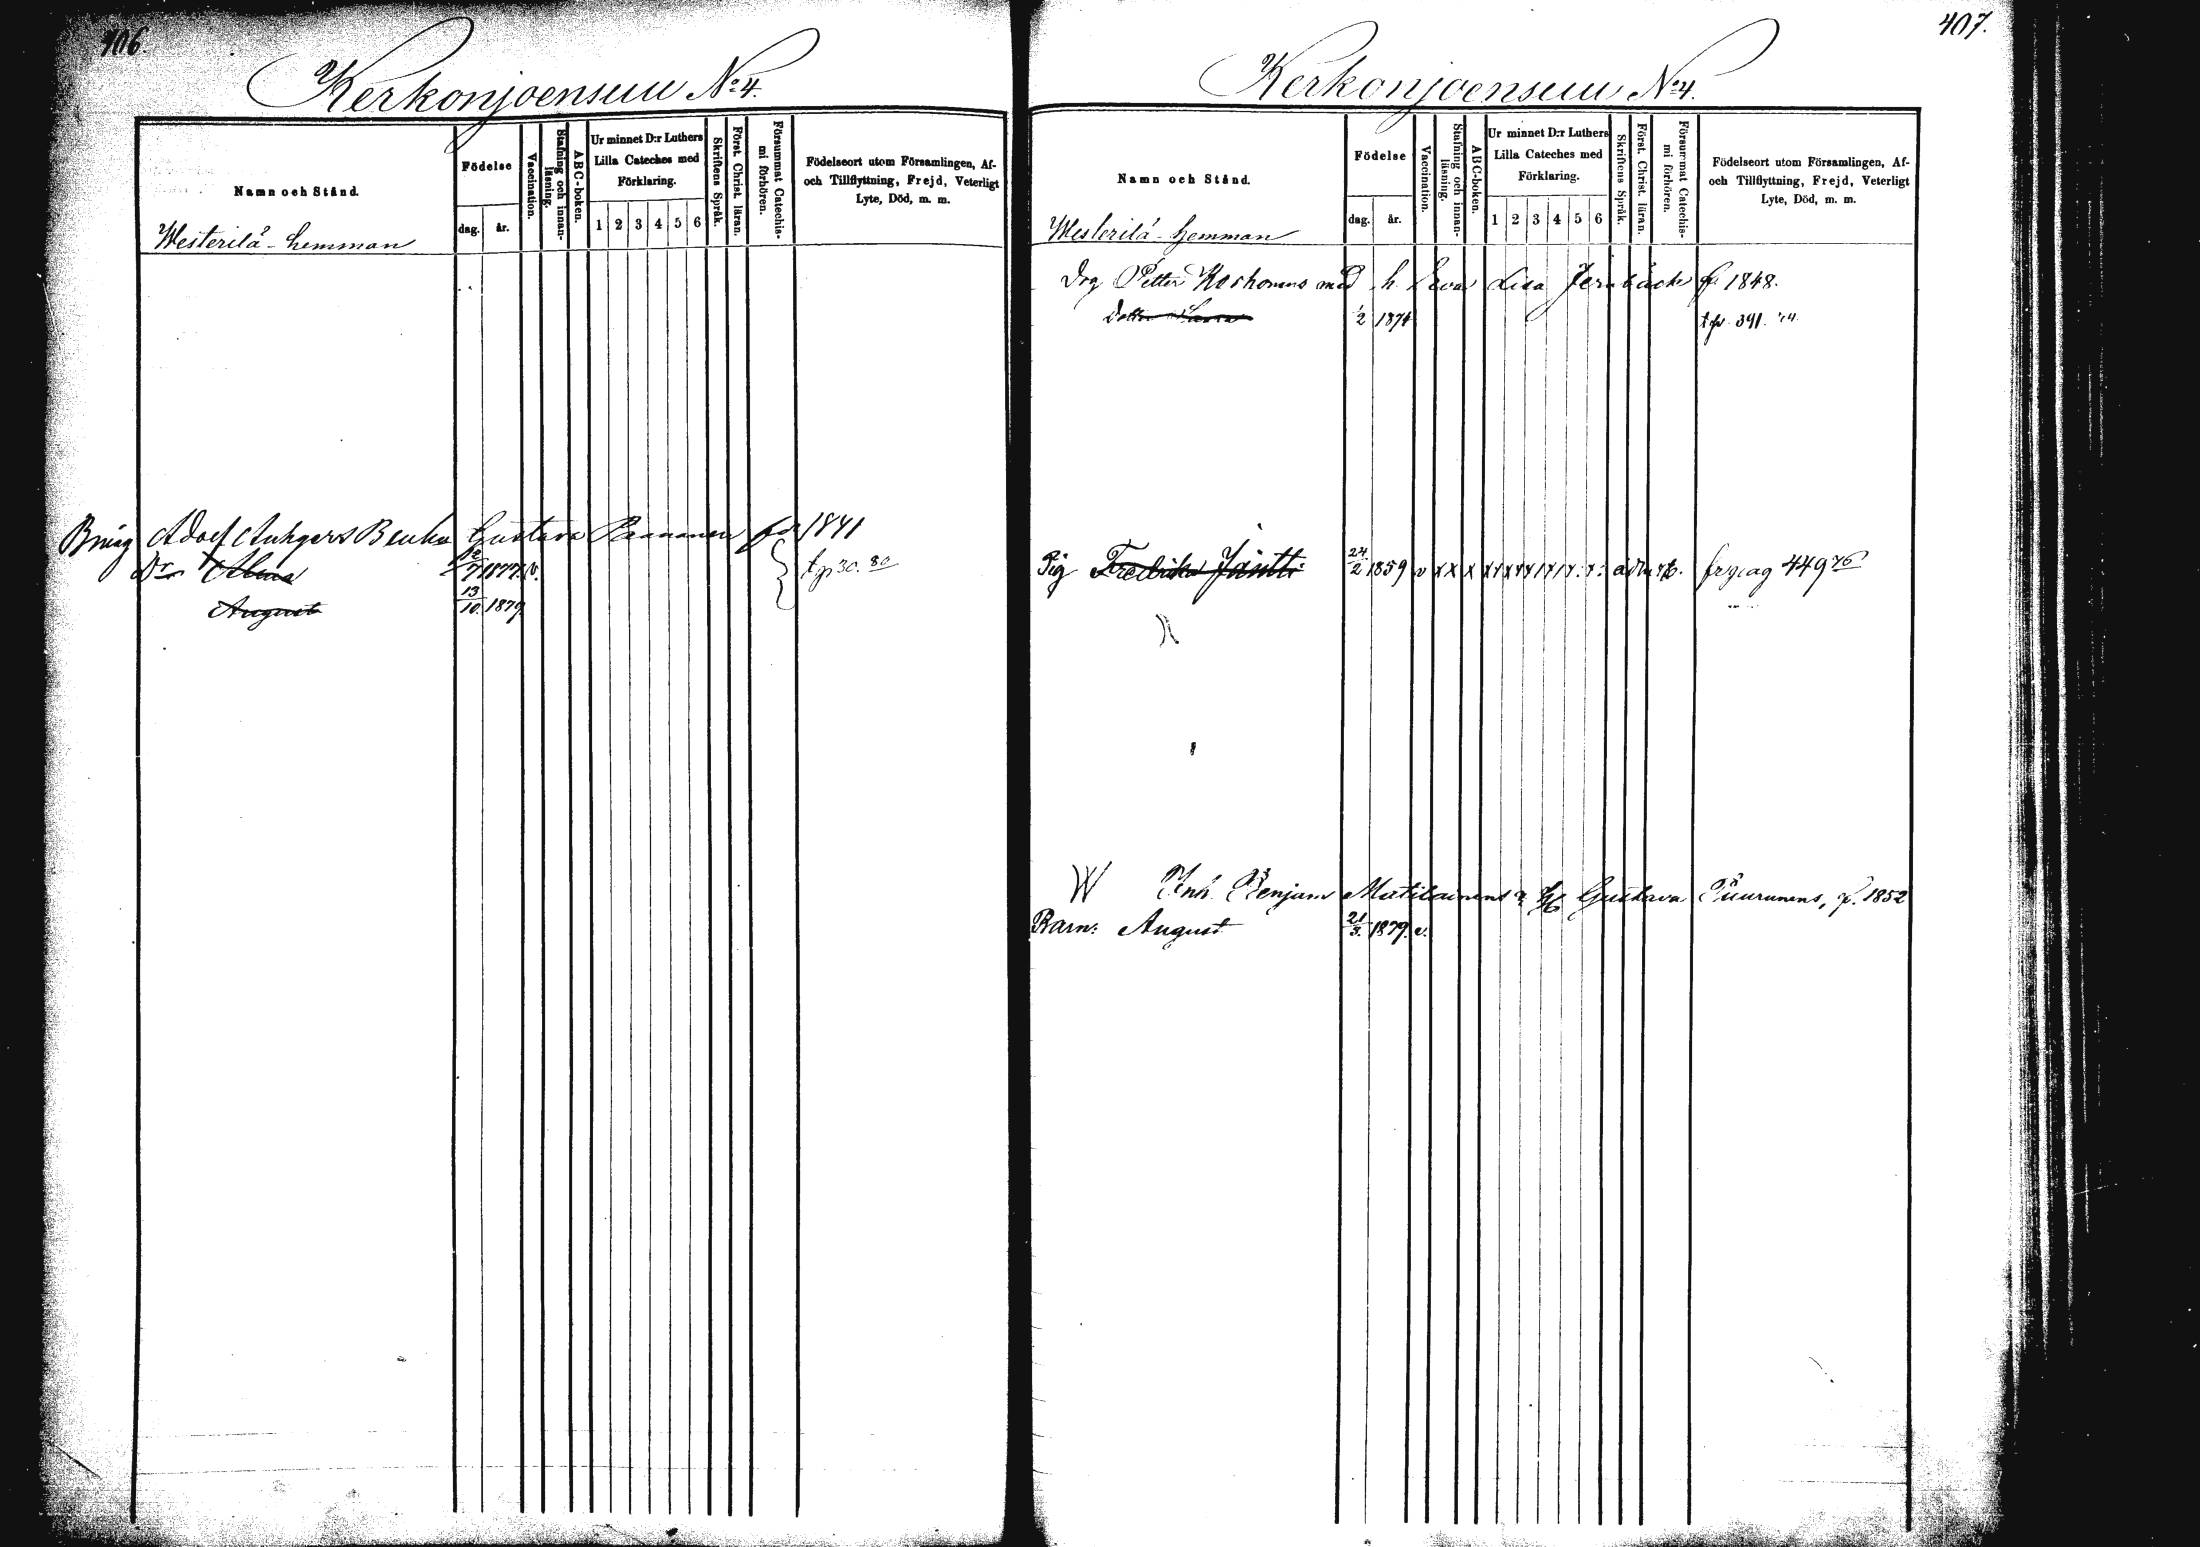 406.
Kerkonjoensuu No 4.
Namn och Stånd.
Födelse
dag.
år.
Vaccination.
Stafning och innan-läsning.
ABC-boken.
Ur minnet D:r Luthers
Lilla Cateches med
Förklaring.
1 2 3 4 5 6
Skriftens Språk.
Först. Christ. läran.
Försummat Catechis-mi förhören.
Födelseort utom Församlingen, Af-
och Tillflyttning, Frejd, Veterligt
Lyte, Död, m. m.
Westerilä - hemman
Adolf Gustava 1841
Dr Alma 12/7 1877. v. tp 30. 80
August 13/10. 1879.
407.
Kerkonjoensuu No 4.
Namn och Stånd.
Födelse
dag.
år.
Vaccination.
Stafning och innan-läsning.
ABC-boken.
Ur minnet D:r Luthers
Lilla Cateches med
Förklaring.
1 2 3 4 5 6
Skriftens Språk.
Först. Christ. läran.
Försummat Catechis-mi förhören.
Födelseort utom Församlingen, Af-
och Tillflyttning, Frejd, Veterligt
Lyte, Död, m. m.
Westerilä - hemman
Drg Petter Korhonens med h. Eva Lisa Jernbäck 1848.
1/2 1874 391.
Pig Fredrika Jäntti 24/2 1859 v x x x 449 76
Inh. Benjam Matilainens Gustava Puurunens, 1852
Barn: August 21/5. 1879. v.